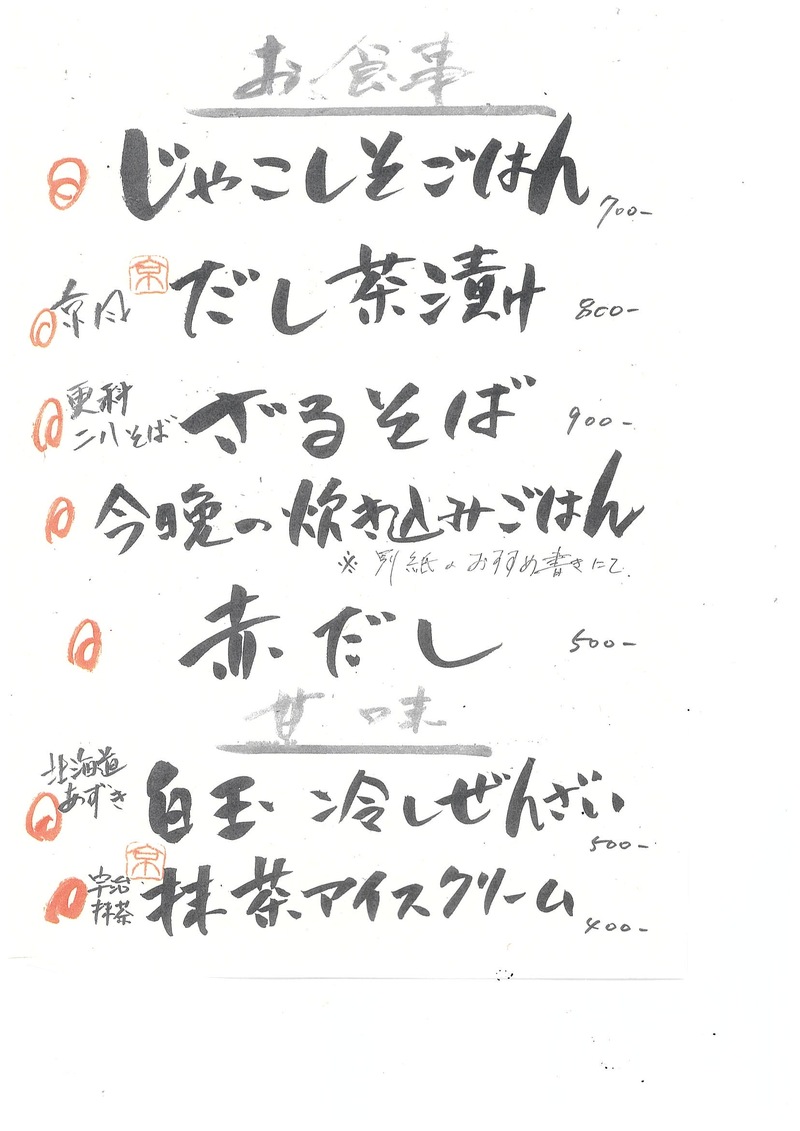 お食事
じゃこしそごはん 700-
京風 京 だし茶漬け 800-
更科 二八そば ざるそば 900-
今晩の炊き込みごはん
※別紙のおすすめ書きにて.
赤だし 500-
甘味
北海道あずき 白玉冷しぜんざい 500-
京
宇治抹茶 抹茶アイスクリーム 400-